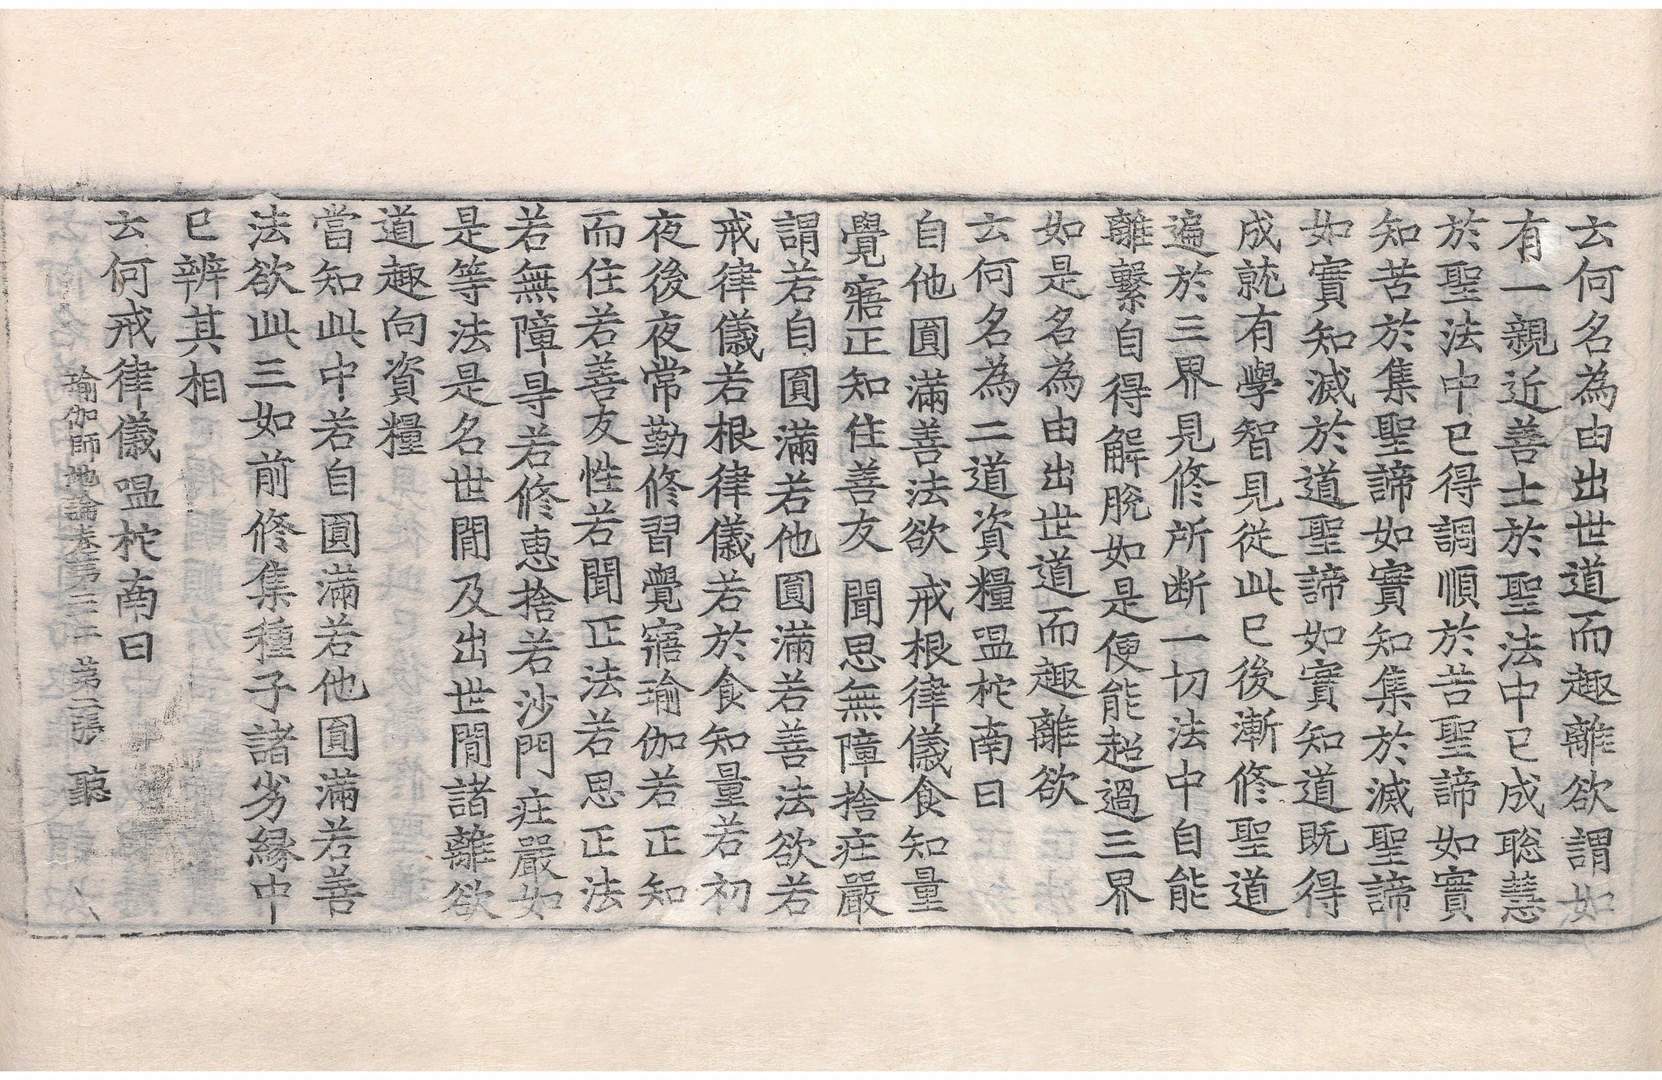 云何名為由出世道而趣離欲謂如
有一親近善士於聖法中已成聡慧
於聖法中已得調順於苦聖諦如實
知苦於集聖諦如實知集於滅聖諦
如實知滅於道聖諦如實知道既得
成就有學智見從此已後漸修聖道
遍於三界見修所断一切法中自能
離繫自得解脫如是便能超過三界
如是名為由出世道而趣離欲
云何名為二道資糧嗢柁南曰
自他圓滿善法欲 戒根律儀食知量
覺寤正知住善友 聞思無障捨庄嚴
謂若自圓滿若他圓滿若善法欲若
戒律儀若根律儀若於食知量若初
夜後夜常勤修習覺寤瑜伽若正知
而住若善友性若聞正法若思正法
若無障㝵若修恵捨若沙門庄嚴如
是等法是名世閒及出世閒諸離欲
道趣向資糧
當知此中若自圓滿若他圓滿若善
法欲此三如前修集種子諸劣縁中
已辨其相
云何戒律儀嗢柁南曰
瑜伽師地論卷第二十二 第二張 聽